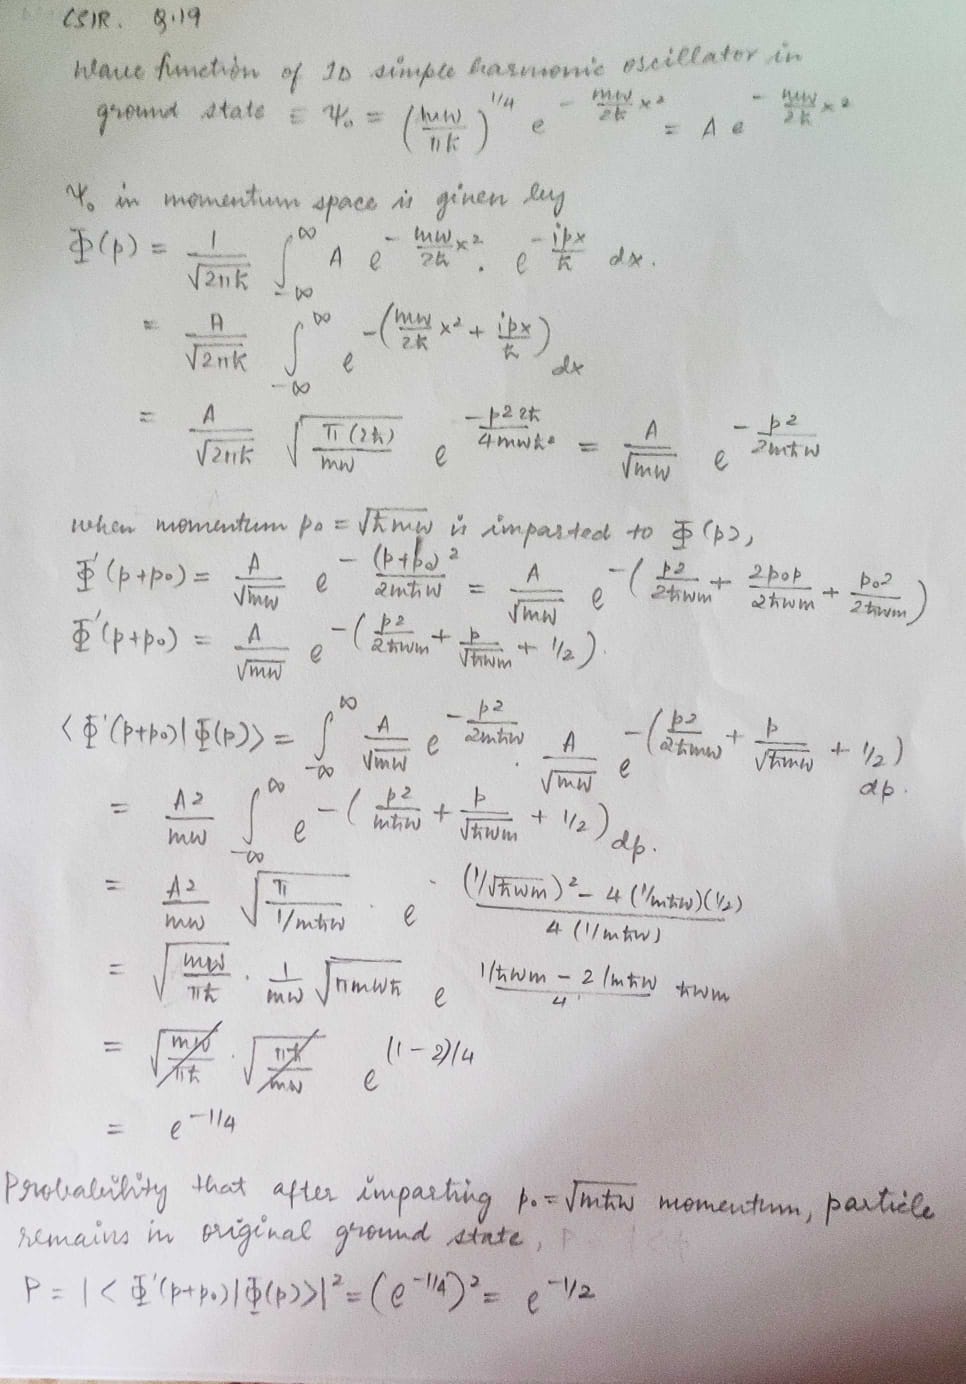 CSIR. Q.19
Wave function of 1D simple harmonic oscillator in
ground state ≡ Ψ₀ = (mω/πħ)^1/4 e^(-mω/2ħ x²) = A e^(-mω/2ħ x²)
Ψ₀ in momentum space is given by
Φ(p) = 1/√2πħ ∫_-∞^∞ A e^(-mω/2ħ x²) . e^(-ipx/ħ) dx.
= A/√2πħ ∫_-∞^∞ e^-(mω/2ħ x² + ipx/ħ) dx
= A/√2πħ √(π(2ħ)/mω) e^(-p² 2ħ/4mωħ²) = A/√mω e^(-p²/2mħω)
when momentum p₀ = √ħmω is imparted to Φ(p),
Φ'(p+p₀) = A/√mω e^(-(p+p₀)²/2mħω) = A/√mω e^-(p²/2ħωm + 2p₀p/2ħωm + p₀²/2ħωm)
Φ'(p+p₀) = A/√mω e^-(p²/2ħωm + p/√ħωm + 1/2).
<Φ'(p+p₀)|Φ(p)> = ∫_-∞^∞ A/√mω e^(-p²/2mħω) . A/√mω e^-(p²/2ħmω + p/√ħmω + 1/2) dp.
= A²/mω ∫_-∞^∞ e^-(p²/mħω + p/√ħωm + 1/2) dp.
= A²/mω √(π/1/mħω) . e^((1/√ħωm)² - 4(1/mħω)(1/2)/4(1/mħω))
= √(mω/πħ) . 1/mω √πmωħ e^((1/ħωm - 2/mħω)/4 ħωm)
= √(mω/πħ) . √(πħ/mω) e^((1-2)/4)
= e^-1/4
Probability that after imparting p₀ = √mħω momentum, particle
remains in original ground state,
P = |<Φ'(p+p₀)|Φ(p)>|² = (e^-1/4)² = e^-1/2